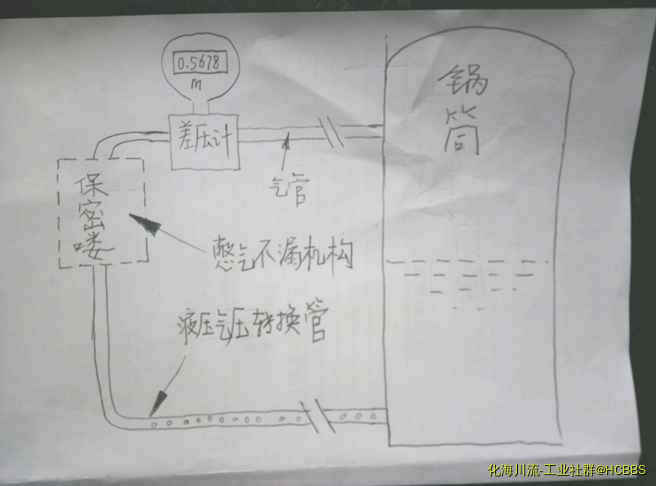 0.5678
m
差压计
锅
筒
气管
保
密
喽
憋气不漏机构
液压气压转换管
化海川流-工业社群@HCBBS